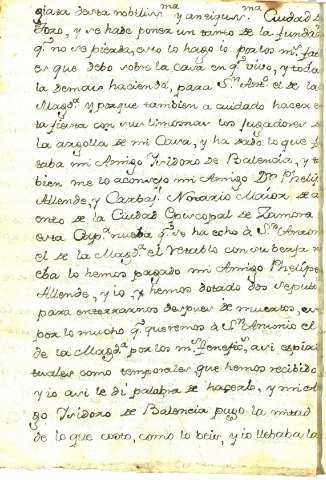 plaza desta nobiliss.ma y antiquis.ma Ciudad de
Toro, y se hade poner un tanto de la funda
q.e no se pierda, esto lo hago io por los m.s fa
es que debo sobre la casa en q.e vivo, y toda
la demas hacienda, para S.n Ant.o el de la
Magd.a y porque tambien a cuidado hacer es
ta fiesta con sus limosnas los jugadores de
la argolla de mi Casa, y ha dado lo que f
taba mi Amigo Isidoro de Balencia, y ta
bien me lo aconsejo mi Amigo D.n Phelip
Allende, y Carbaj.l Notario Maior de a
ento de la Ciudad Episcopal de Zamora
esta Cap.a nueba q.e se ha echo à S.n Anton
el de la Magd.a el retablo con su berja n
eba lo hemos pagado mi Amigo Phelipe
Allende, y io, y hemos dotado dos sepult
para enterrarnos despues de muertos, es
por lo mucho q.e queremos à S.n Antonio el
de la Magd.a por los m.s benefic.s asi espiri
tuales como temporales que hemos recibido
y io asi le di palabra de hacerlo, y mi A
go Isidoro de Balencia pagò la mitad
de lo que costo, como lo beis, y io llebaba la